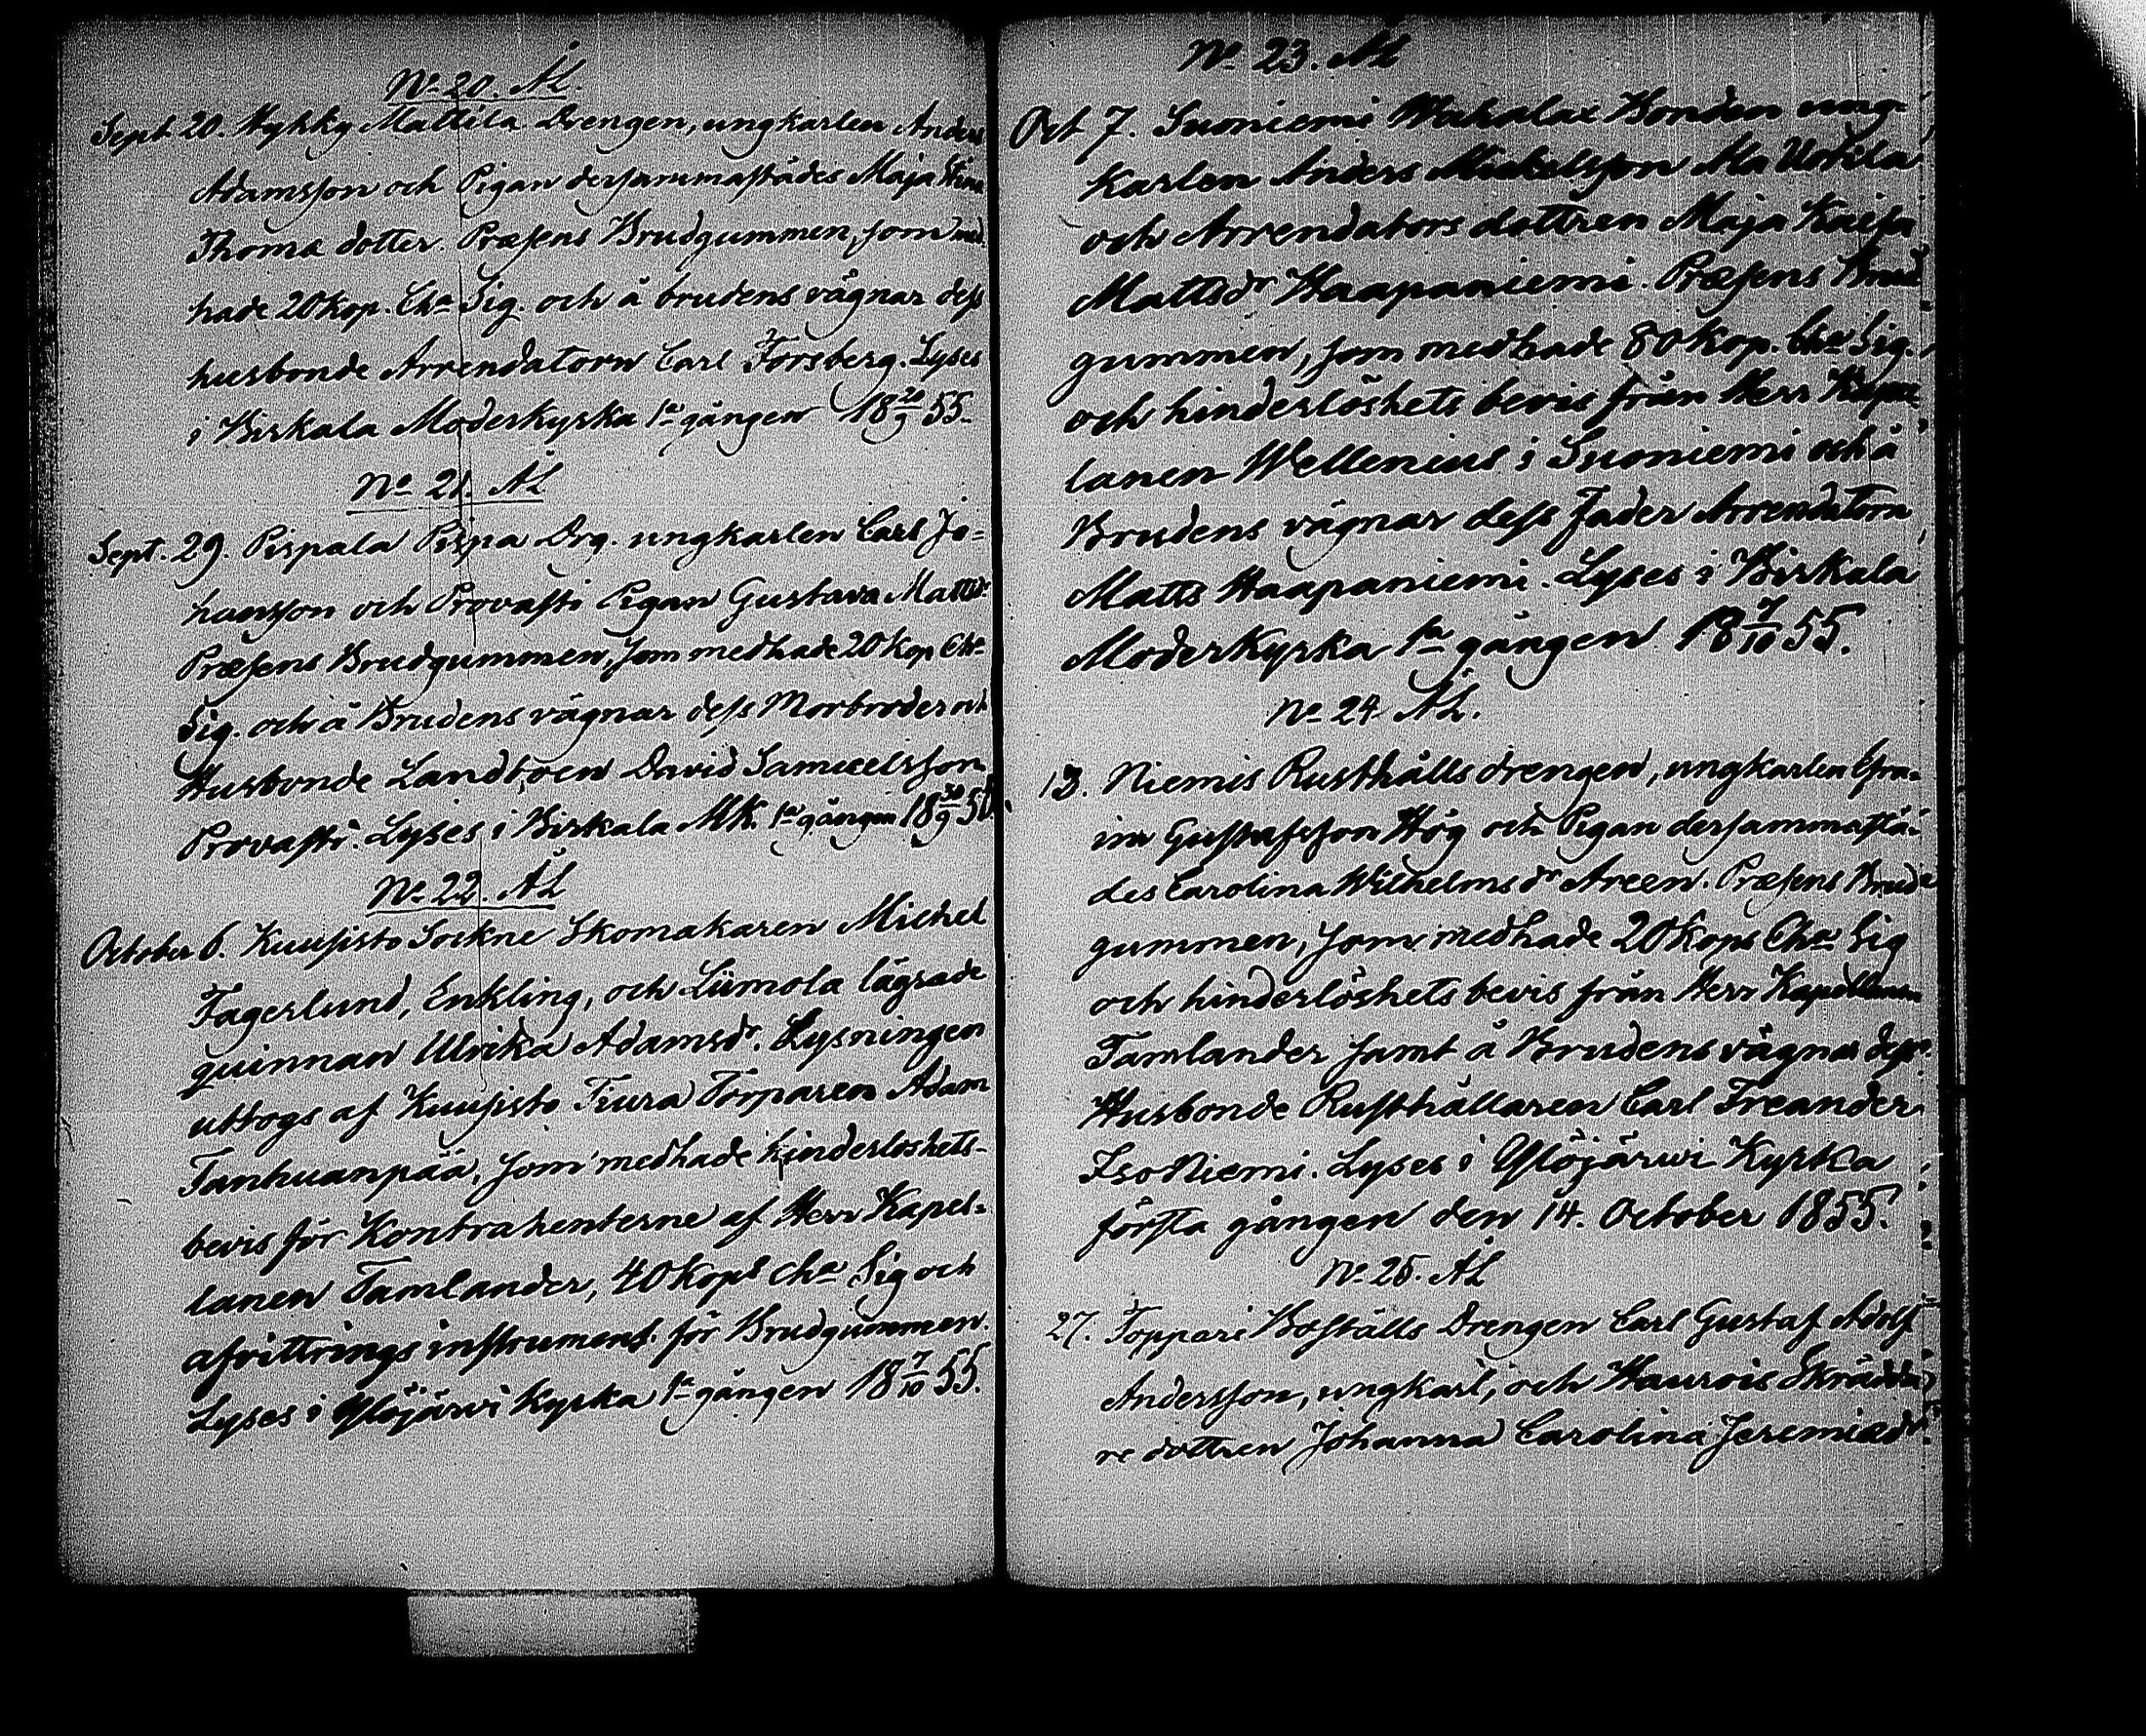 No 20. ÅL.
Sept 20. Hykky Mattila Drengen, ungkarlen Anders
Adamsson och Pigan dersammastädes Maja Stina
Thoma dotter. Præsens Brudgummen, som med
hade 20 kop. Cha Sig. och å brudens vägnar dess
husbonde Arrendatorn Carl Forsberg. Lyses
i Birkala Moderkyrka 1a gången 18 20/9 55.
No 21. ÅL
Sept. 29. Pispala Pispa Drg. ungkarlen Carl Jo=
hansson och Provasti Pigan Gustava Mattsdr
Præsens Brudgummen, som medhade 20 kop Cha
Sig. och å Brudens vägnar dess Morbroder och
Husbonde Landboen David Samuelsson
Provasti. Lyses i Birkala MK. 1a gången 18 30/9 55.
No 22. ÅL
October 6. Kuusisto Sockne Skomakaren Michel
Fagerlund, Enkling, och Liimola lägrade
quinnan Ulrika Adamsdr. Lysningen
uttogs af Kuusisto Tiura Torparen Adam
Tanhuanpää, som medhade hinderloshets-
bevis för Kontrahenterne af Herr Kapel=
lanen Tamlander, 40 kops cha Sig och
afvittrings instrument för Brudgummen.
Lyses i Ylöjärwi Kyrka 1a gången 18 7/10 55.
No 23. ÅL
Oct 7. Suoniemi Wahalax Bonden ung=
karlen Anders Mickelsson Ala Uotila
och Arrendators dottren Maja Kaisa
Mattsdr Haapaniemi. Præsens Brud=
gummen, som medhade 80 kop. Cha Sig.
och hinderlöshets bevis från Herr Kapel=
lanen Wellenius i Suoniemi och å
Brudens vägnar dess Fader Arrendatorn
Matts Haapaniemi. Lyses i Birkala
Moderkyrka 1a gången 18 7/10 55.
No 24 ÅL.
13. Niemis Rusthålls drengen, ungkarlen Efra=
im Gustafsson Hög och Pigan dersammastä=
des Carolina Wilhelmsdr Areen. Præsens Brud=
gummen, som medhade 20 kops Cha Sig
och hinderlöshets bevis från Herr Kapellanen
Tamlander samt å Brudens vägnar dess
Husbonde Rusthållaren Carl Freander
Iso Niemi. Lyses i Ylöjärwi Kyrka
första gången den 14. October 1855.
No 25. ÅL
27. Toppari Boställs Drengen Carl Gustaf Adolf
Andersson, ungkarl, och Haurois Skrädda=
re dottren Johanna Carolina Jeremiædr.